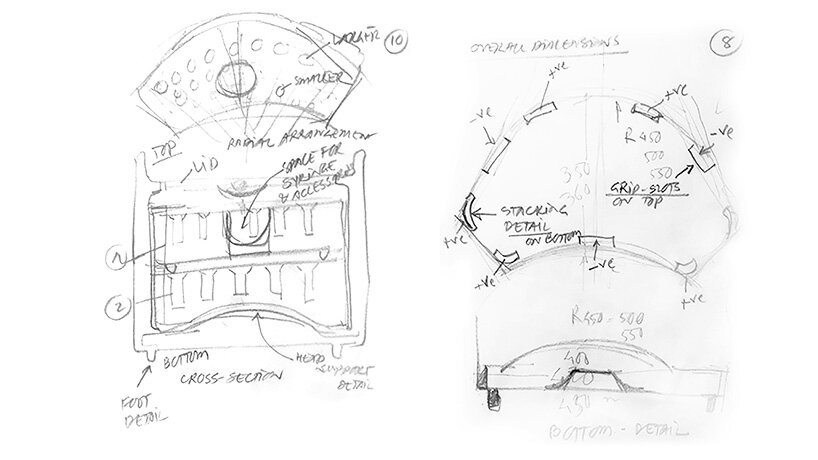 LARGER
10
SMALLER
RADIAL ARRANGEMENT
TOP
LID
SPACE FOR
SYRINGE
& ACCESSORIES
1
2
BOTTOM
CROSS-SECTION
HEAD
SUPPORT
DETAIL
FOOT
DETAIL
OVERALL DIMENSIONS
8
+ve
+ve
-ve
-ve
R 450
500
550
350
360
GRIP-SLOTS
ON TOP
STACKING
DETAIL
ON BOTTOM
+ve
+ve
-ve
+ve
R450-500
550
400
430
BOTTOM - DETAIL